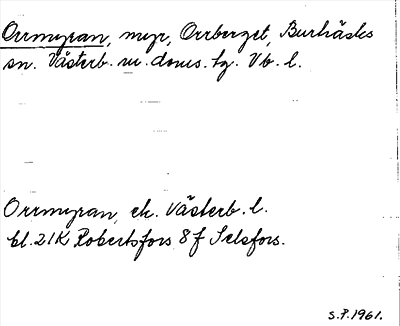 Orrmyran, myr, Orrberget, Burträsks
sn. Västerb. m. doms. tg. Vb. l.
Orrmyran, ek. Västerb. l.
bl. 21K Robertsfors 8f Selsfors.
S.P. 1961.